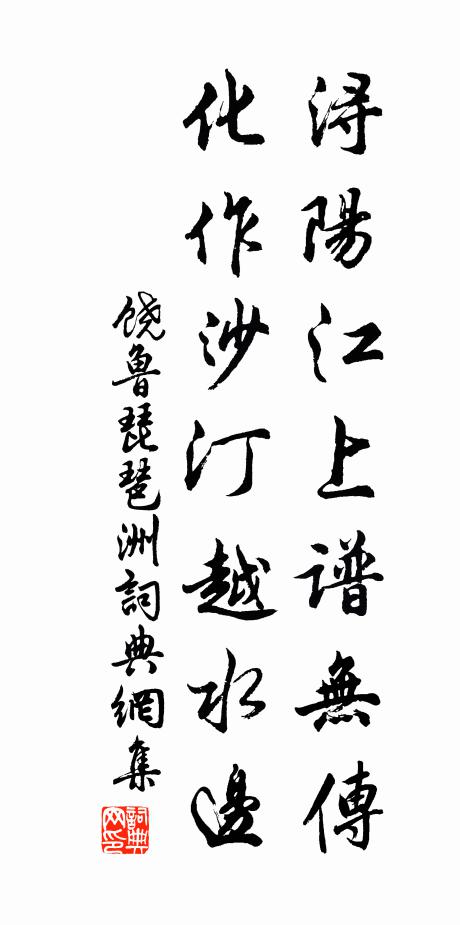 浔陽江上譜無傳
化作沙汀越水邊
饶魯琵琶洲詞典網集
詞典
网印